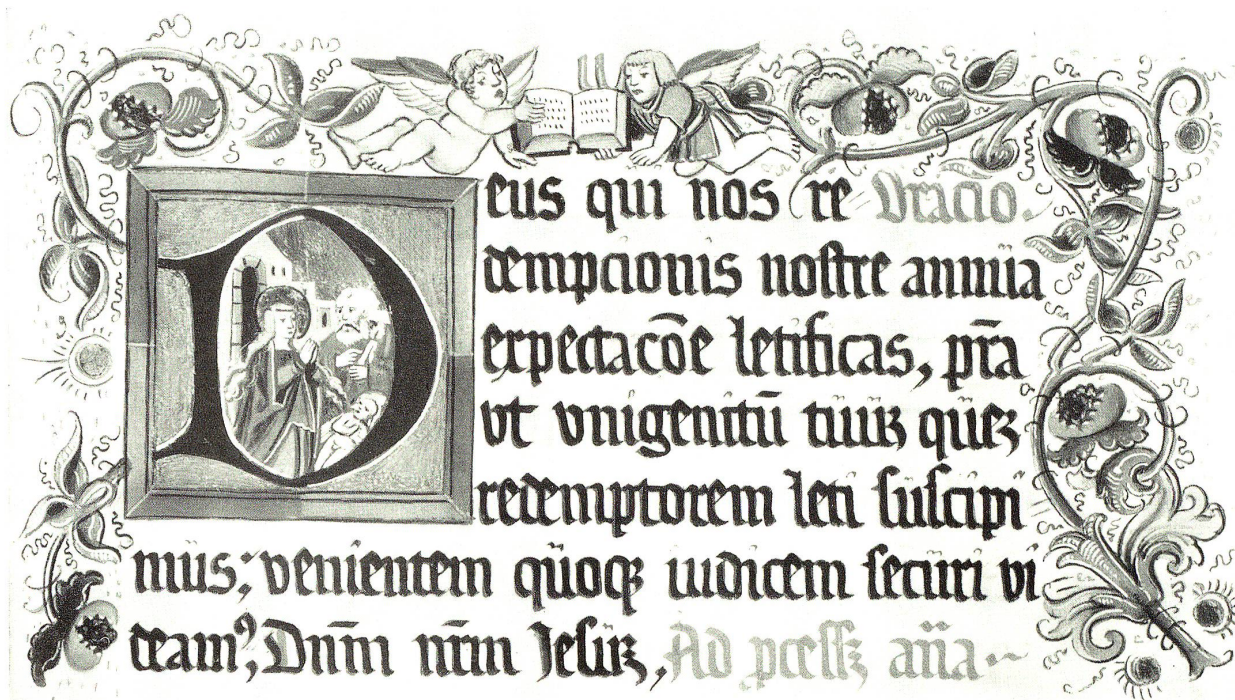 Deus qui nos re Oracio.
dempcionis nostre annua
expectacōe letificas, p̄ra
vt vnigenitū tuuꝫ queꝫ
redemptorem leti suscipi
mus; venientem quoqꝫ iudicem securi vi
deamꝰ, Dn̄m nr̄m Jesuꝫ, Ad p̄cessꝫ an̄a